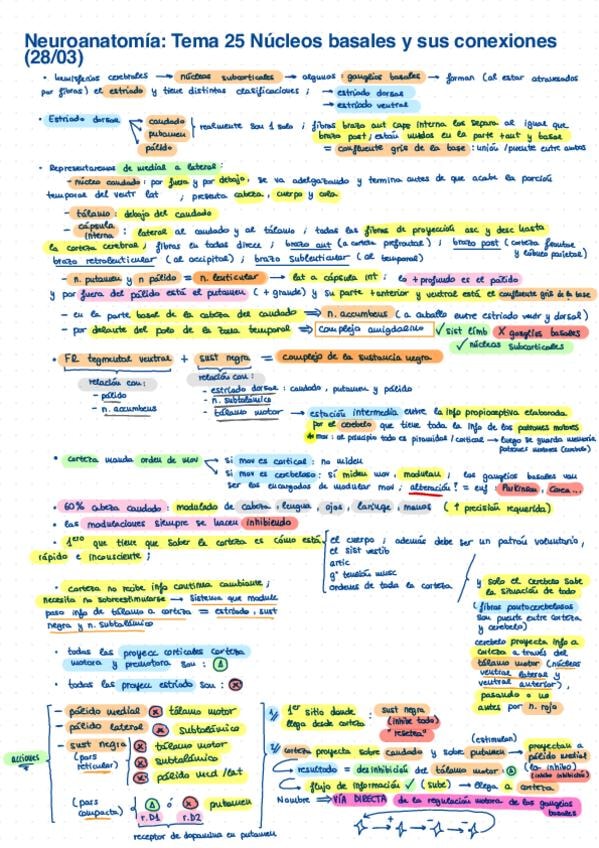 Neuroanatomía: Tema 25 Núcleos basales y sus conexiones
(28/03)
• hemisferios cerebrales → núcleos subcorticales → algunos: ganglios basales → forman (al estar atravesados
por fibras) el estriado y tiene distintas clasificaciones; → estriado dorsal
→ estriado ventral
• Estriado dorsal caudado
putamen
pálido
realmente son 1 solo; fibras brazo ant caps interna los separa al igual que
brazo post; están unidos en la parte +ant y basal
= confluente gris de la base: unión/puente entre ambos
• Representaremos de medial a lateral:
- núcleo caudado: por fuera y por debajo, se va adelgazando y termina antes de que acabe la porción
temporal del ventr lat; presenta cabeza, cuerpo y cola
- tálamo: debajo del caudado
- cápsula interna: lateral al caudado y al tálamo; todas las fibras de proyección asc y desc hasta
la corteza cerebral, fibras en todas direcc; brazo ant (a corteza prefrontal); brazo post (corteza frontal
y lóbulo parietal)
brazo retrolenticular (al occipital); brazo sublenticular (al temporal)
- n. putamen y n pálido = n. lenticular → lat a cápsula int; lo +profundo es el pálido
y por fuera del pálido está el putamen (+grande) y su parte +anterior y ventral está el confluente gris de la base
- en la parte basal de la cabeza del caudado ⇒ n. accumbens (a caballo entre estriado ventr y dorsal)
- por delante del polo de la zona temporal ⇒ complejo amigdalino ✓ sist limb X ganglios basales
✓ núcleos subcorticales
• FR tegmental ventral + sust negra = complejo de la sustancia negra
relación con:
- pálido
- n. accumbens
relación con:
- estriado dorsal: caudado, putamen y pálido
- n. subtalámico
- tálamo motor → estación intermedia entre la info propioceptiva elaborada
por el cerebelo que tiene toda la info de los patrones motores
mov: al principio todo es piramidal/cortical → luego se guarda memoria
patrones motores
• corteza manda orden de mov si mov es cortical: no miden
si mov es cerebeloso: sí miden mov, modulan; los ganglios basales van
ser los encargados de modular mov; alteración? = enf: Parkinson, Corea...
• 60% cabeza caudado: modulado de cabeza, lengua, ojos, laringe, manos (↑ precisión requerida)
• las modulaciones siempre se hacen inhibiendo
• 1ero que tiene que saber la corteza es cómo está
rápido e inconsciente;
el cuerpo; además debe ser un patrón voluntario,
el sist vestib
artic
gº tensión musc
órdenes de toda la corteza
y solo el cerebelo sabe
la situación de todo
(fibras pontocerebelosas
son puente entre corteza
y cerebelo)
cerebelo proyecta info a
corteza a través del
tálamo motor (núcleos
ventral lateral y
ventral anterior),
pasando o no
antes por n. rojo
• corteza no recibe info continua cambiante;
necesita no sobreestimularse → sistema que module
paso info de tálamo a corteza = estriado, sust
negra y n. subtalámico
• todas las proyecc corticales corteza
motora y premotora son: Δ
• todas las proyecc estriado son: X
acciones
- pálido medial X tálamo motor
- pálido lateral X subtalámico
- sust negra (pars reticular) X tálamo motor
X subtalámico
X pálido med/lat
(pars compacta) Δ ó X putamen
r.D1 r.D2
receptor de dopamina en putamen
1// 1er sitio donde
llega desde corteza: sust negra
(inhibe todo)
"resetea"
2// corteza proyecta sobre caudado y sobre putamen → proyectan a
(estimulan)
pálido medial
(lo inhibo)
(inhibo inhibición)
resultado = desinhibición del tálamo motor: Δ
flujo de información ✓ (sube) → llega a corteza
Nombre ⇒ VÍA DIRECTA de la regulación motora de los ganglios
basales